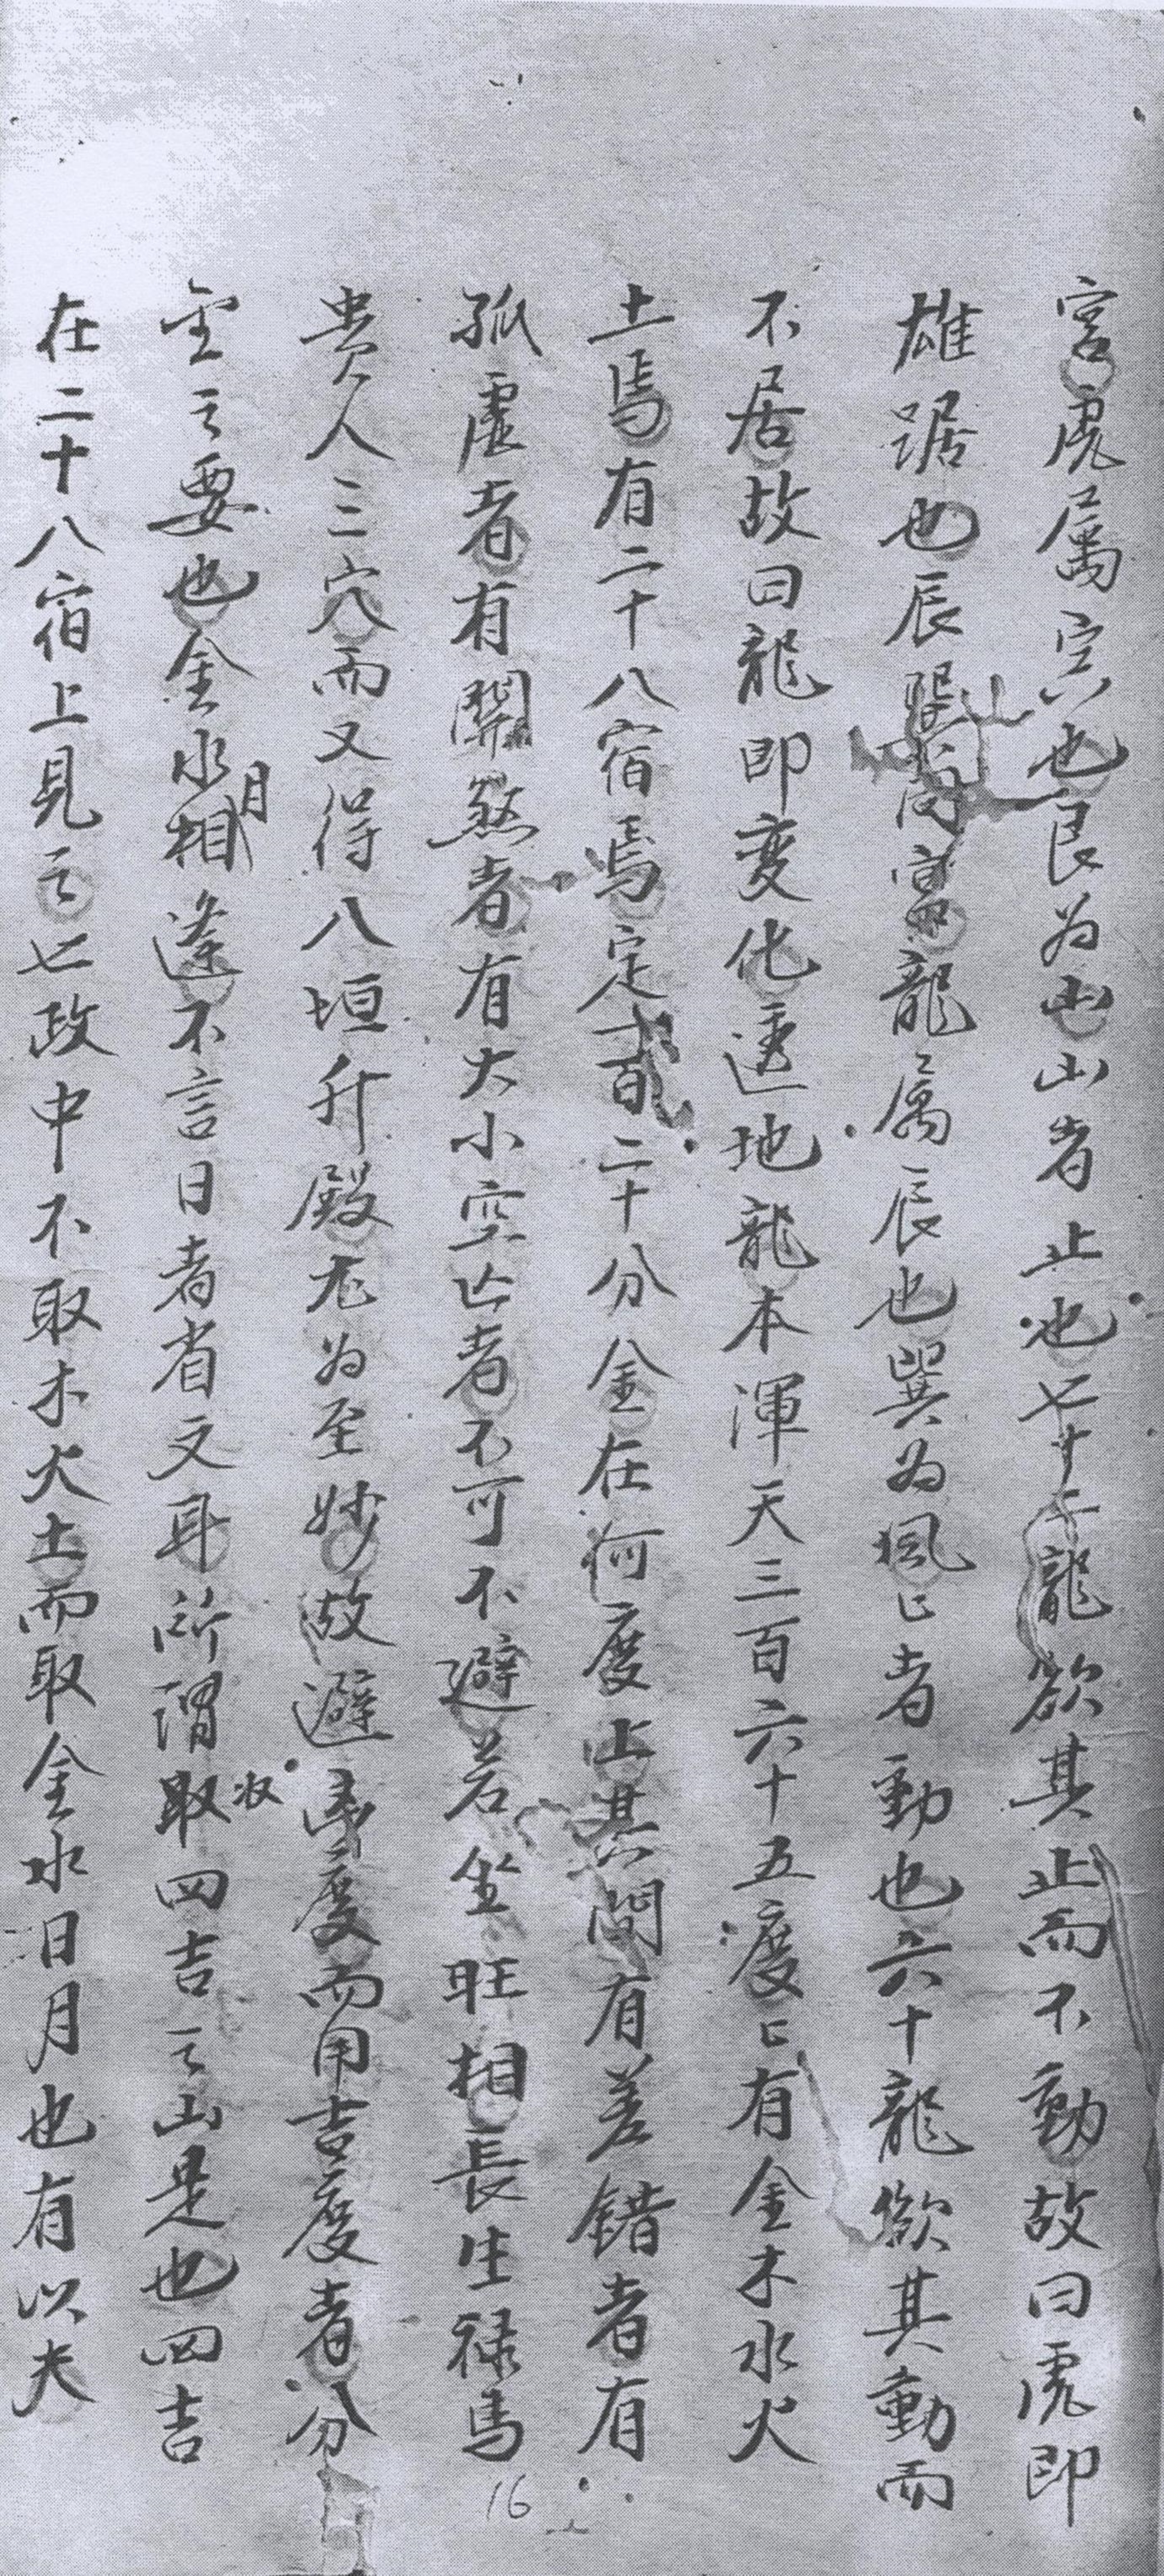 宮虎属寅也艮為山山者止也七十二龍欲其止而不動故曰虎即
雄踞也辰巽同宮龍属辰也巽為風〻者動也六十龍欲其動而
不居故曰龍即変化透地龍本渾天三百六十五度〻有金木水火
土焉有二十八宿焉定百二十分金在何度止其間有差錯者有
孤虛者有關煞者有大小空亡者不可不避若坐旺相長生禄馬
贵人三穴而又得八垣升殿尤為至妙故避凶度而用吉度者分
金之要也金水月相逢不言日者省文耳所謂取收四吉之山是也四吉
在二十八宿上見之七政中不取木火土而取金水日月也有以夫
16